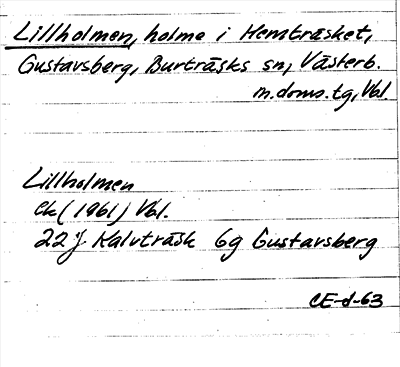 Lillholmen, holme i Hemträsket,
Gustavsberg, Burträsks sn, Västerb.
m.doms.tg, Vbl.
Lillholmen
Ek (1961) Vbl.
22 J Kalvträsk 6g Gustavsberg
CE-d-63